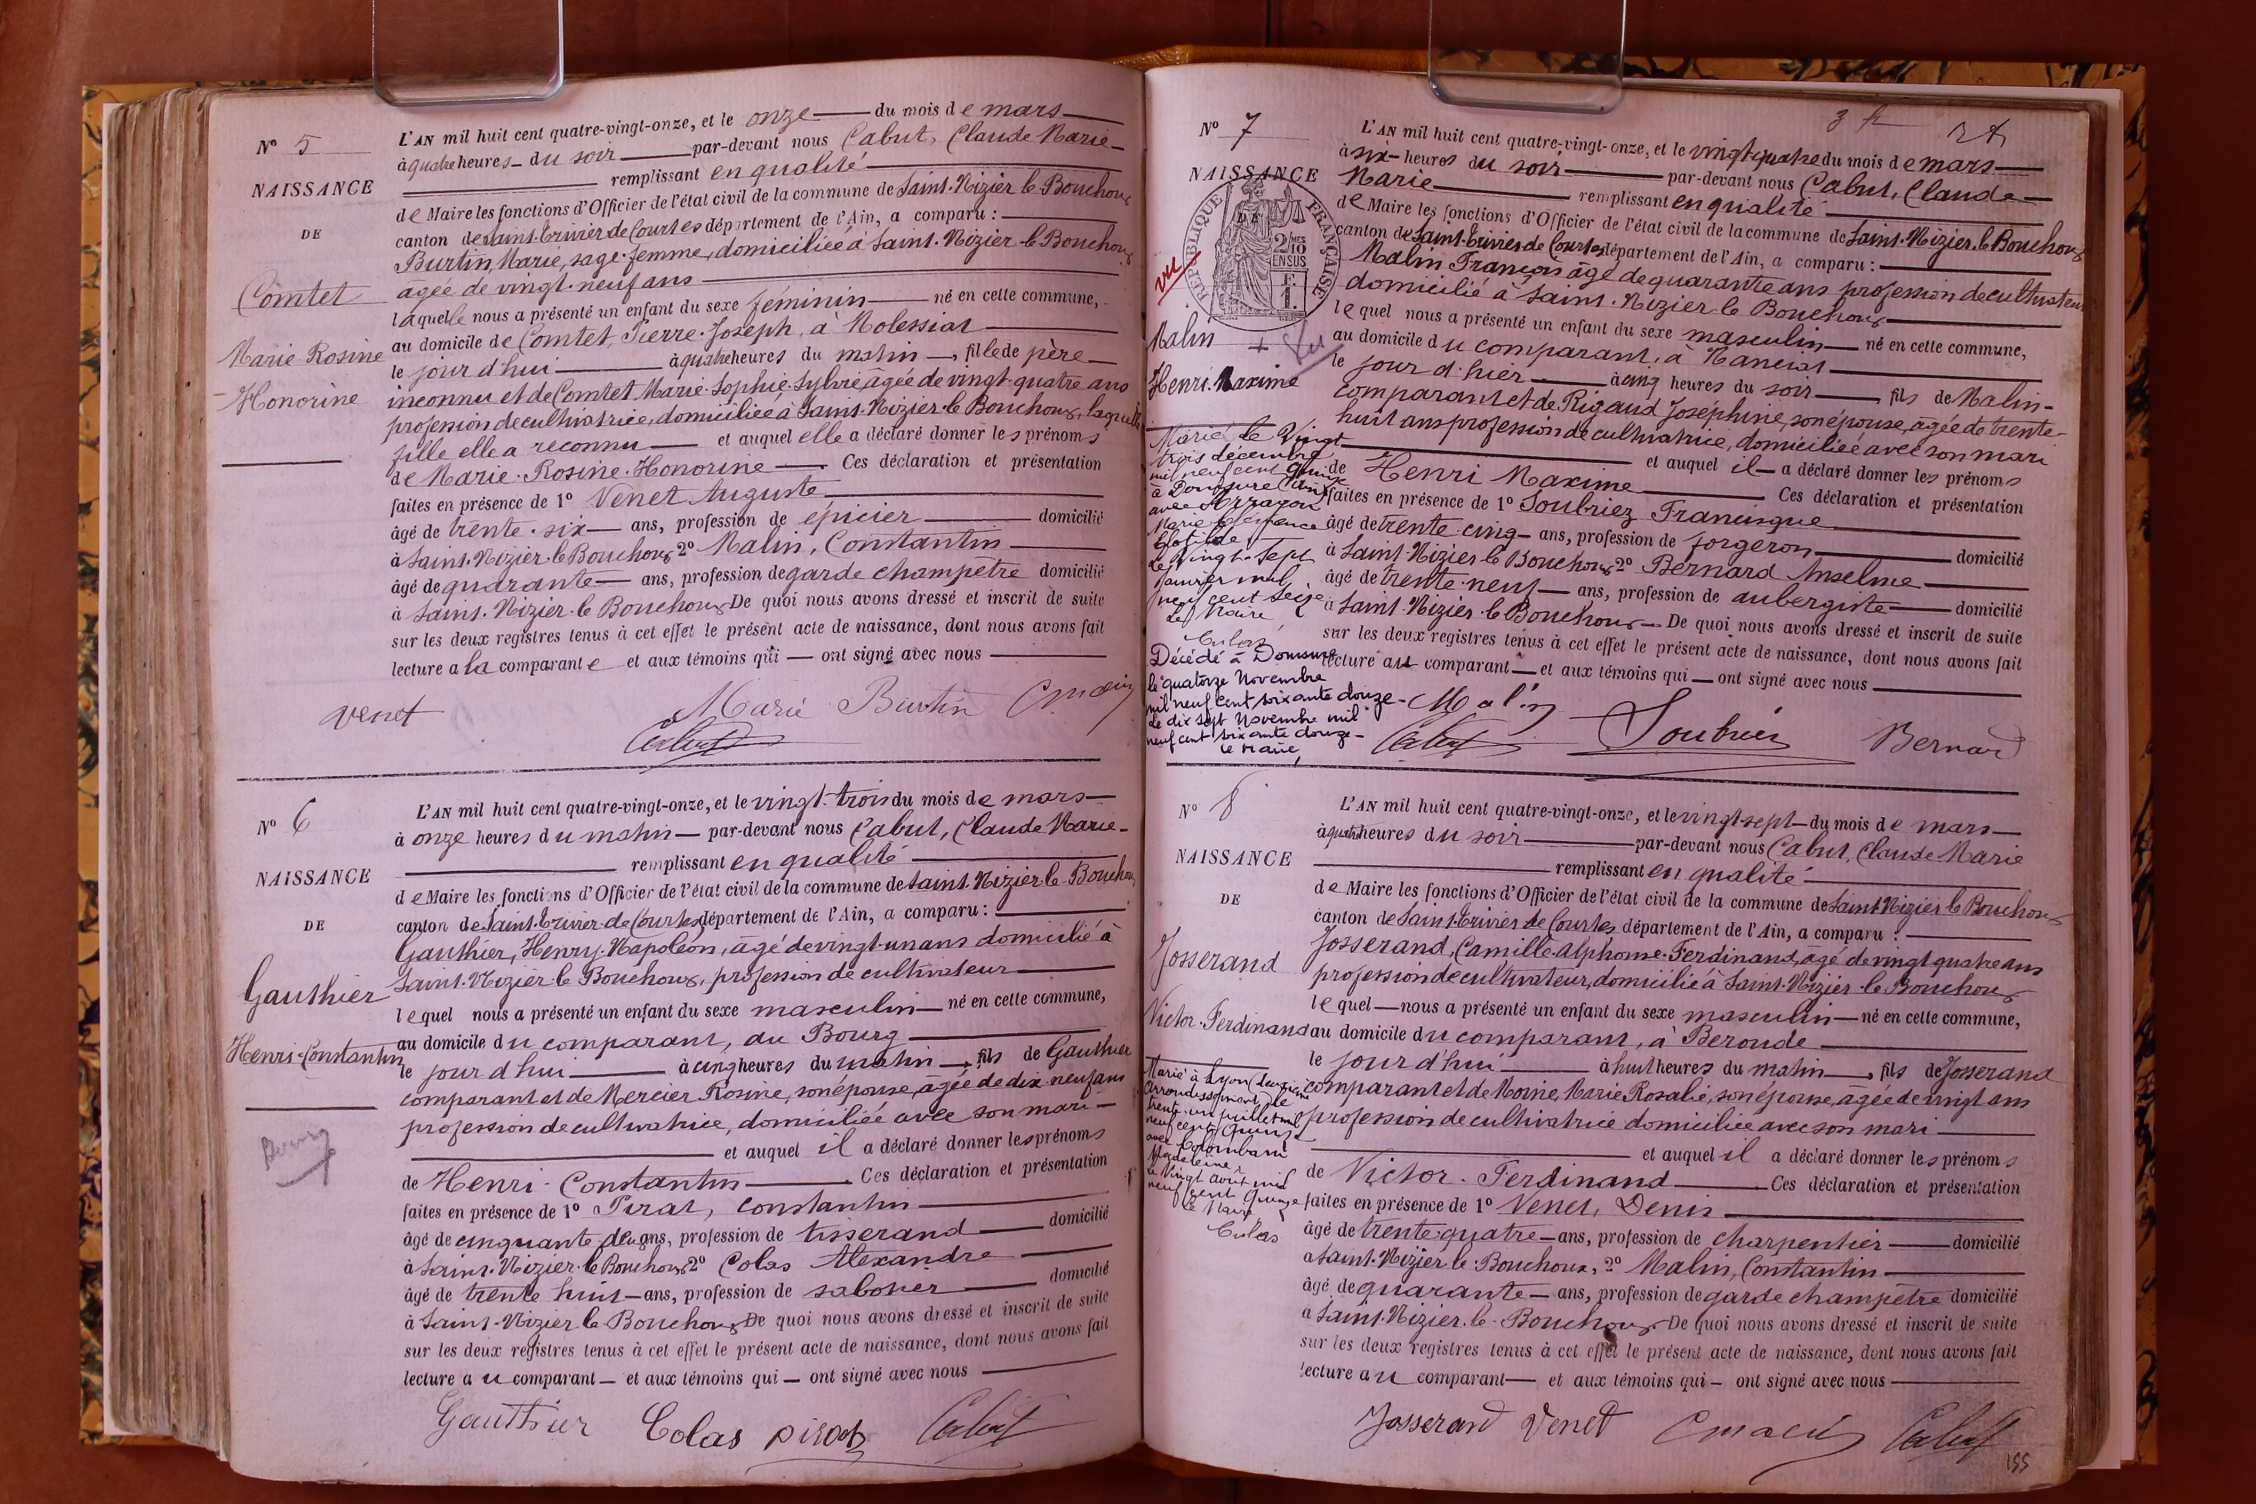 N° 5
NAISSANCE
DE
Comtet
Marie Rosine
Honorine
L'AN mil huit cent quatre-vingt-onze, et le onze du mois de mars
à quatre heures du soir par-devant nous Cabut, Claude Marie
remplissant en qualité
de Maire les fonctions d'Officier de l'état civil de la commune de Saint-Nizier-le-Bouchoux
canton de Saint-Trivier de Courtes département de l'Ain, a comparu :
Burtin, Marie, sage-femme, domiciliée à Saint-Nizier-le-Bouchoux
agée de vingt-neuf ans
laquelle nous a présenté un enfant du sexe féminin né en cette commune,
au domicile de Comtet, Pierre-Joseph, à Molessiat
le jour d'hui à quatre heures du matin, fille de père
inconnu et de Comtet Marie-Sophie-Sylvie âgée de vingt-quatre ans
profession de cultivatrice, domiciliée à Saint-Nizier-le-Bouchoux, laquelle
fille elle a reconnu et auquel elle a déclaré donner les prénoms
de Marie-Rosine-Honorine Ces déclaration et présentation
faites en présence de 1° Venet Auguste
âgé de trente-six ans, profession de épicier domicilié
à Saint-Nizier-le-Bouchoux 2° Malin, Constantin
âgé de quarante ans, profession de garde champêtre domicilié
à Saint-Nizier-le-Bouchoux De quoi nous avons dressé et inscrit de suite
sur les deux registres tenus à cet effet le présent acte de naissance, dont nous avons fait
lecture a la comparante et aux témoins qui ont signé avec nous
venet Marie Burtin Cmalin
Cabut
N° 6
NAISSANCE
DE
Gauthier
Henri-Constantin
Bourg
L'AN mil huit cent quatre-vingt-onze, et le vingt-trois du mois de mars
à onze heures du matin par-devant nous Cabut, Claude Marie
remplissant en qualité
de Maire les fonctions d'Officier de l'état civil de la commune de Saint-Nizier-le-Bouchoux
canton de Saint-Trivier-de-Courtes département de l'Ain, a comparu :
Gauthier, Henry-Napoléon, âgé de vingt-un ans domicilié à
Saint-Nizier-le-Bouchoux, profession de cultivateur
lequel nous a présenté un enfant du sexe masculin né en cette commune,
au domicile du comparant, au Bourg
le jour d'hui à cinq heures du matin, fils de Gauthier
comparant et de Mercier Rosine, son épouse, âgée de dix-neuf ans
profession de cultivatrice, domiciliée avec son mari
et auquel il a déclaré donner les prénoms
de Henri-Constantin Ces déclaration et présentation
faites en présence de 1° Pirat, Constantin
âgé de cinquante deux ans, profession de tisserand domicilié
à Saint-Nizier-le-Bouchoux 2° Colas Alexandre
âgé de trente huit ans, profession de sabotier domicilié
à Saint-Nizier-le-Bouchoux De quoi nous avons dressé et inscrit de suite
sur les deux registres tenus à cet effet le présent acte de naissance, dont nous avons fait
lecture au comparant et aux témoins qui ont signé avec nous
Gauthier Colas pirat Cabut
N° 7
NAISSANCE
RÉPUBLIQUE FRANÇAISE
2/10 EN SUS
vu
Malin
Henri-Maxime
Marié le Vingt
trois décembre
mil neuf cent quinze
à Domsure (Ain)
avec
Marie
Clotilde
Le Vingt-Sept
Janvier mil
neuf cent Seize
Le Maire
Décédé à Domsure
le quatorze Novembre
mil neuf cent soixante douze
Le dix sept Novembre mil
neuf cent soixante douze
Le Maire,
L'AN mil huit cent quatre-vingt-onze, et le vingt-quatre du mois de mars
à six heures du soir par-devant nous Cabut, Claude
Marie remplissant en qualité
de Maire les fonctions d'Officier de l'état civil de la commune de Saint-Nizier-le-Bouchoux
canton de Saint-Trivier de Courtes département de l'Ain, a comparu :
Malin François âgé de quarante ans profession de cultivateur
domicilié à Saint-Nizier-le-Bouchoux
lequel nous a présenté un enfant du sexe masculin né en cette commune,
au domicile du comparant, à Nanciat
le jour d'hier à cinq heures du soir fils de Malin
comparant et de Rigaud Joséphine, son épouse, âgée de trente-
huit ans profession de cultivatrice, domiciliée avec son mari
et auquel il a déclaré donner les prénoms
de Henri Maxime Ces déclaration et présentation
faites en présence de 1° Soubriez Francisque
âgé de trente-cinq ans, profession de forgeron domicilié
à Saint-Nizier-le-Bouchoux 2° Bernard Anselme
âgé de trente-neuf ans, profession de aubergiste domicilié
à Saint-Nizier-le-Bouchoux De quoi nous avons dressé et inscrit de suite
sur les deux registres tenus à cet effet le présent acte de naissance, dont nous avons fait
lecture au comparant et aux témoins qui ont signé avec nous
Malin
Cabut Soubriez Bernard
N° 8
NAISSANCE
DE
Josserand
Victor-Ferdinand
Marié à Lyon
arrondissement le
trente-un juillet mil
neuf cent quinze
avec Colombani
Madeleine
Le Vingt août mil
neuf cent quinze
Le Maire
L'AN mil huit cent quatre-vingt-onze, et le vingt-sept du mois de mars
à quatre heures du soir par-devant nous Cabut, Claude Marie
remplissant en qualité
de Maire les fonctions d'Officier de l'état civil de la commune de Saint-Nizier-le-Bouchoux
canton de Saint-Trivier de Courtes département de l'Ain, a comparu :
Josserand, Camille-Alphonse-Ferdinand, âgé de vingt quatre ans
profession de cultivateur, domicilié à Saint-Nizier-le-Bouchoux
lequel nous a présenté un enfant du sexe masculin né en cette commune,
au domicile du comparant, à Beroude
le jour d'hui à huit heures du matin, fils de Josserand
comparant et de Moine, Marie Rosalie, son épouse, âgée de vingt ans
profession de cultivatrice domiciliée avec son mari
et auquel il a déclaré donner les prénoms
de Victor-Ferdinand Ces déclaration et présentation
faites en présence de 1° Venet, Denis
âgé de trente-quatre ans, profession de charpentier domicilié
à Saint-Nizier-le-Bouchoux, 2° Malin, Constantin
âgé de quarante ans, profession de garde champêtre domicilié
à Saint-Nizier-le-Bouchoux De quoi nous avons dressé et inscrit de suite
sur les deux registres tenus à cet effet le présent acte de naissance, dont nous avons fait
lecture au comparant et aux témoins qui ont signé avec nous
Josserand Venet Cmalin Cabut
155